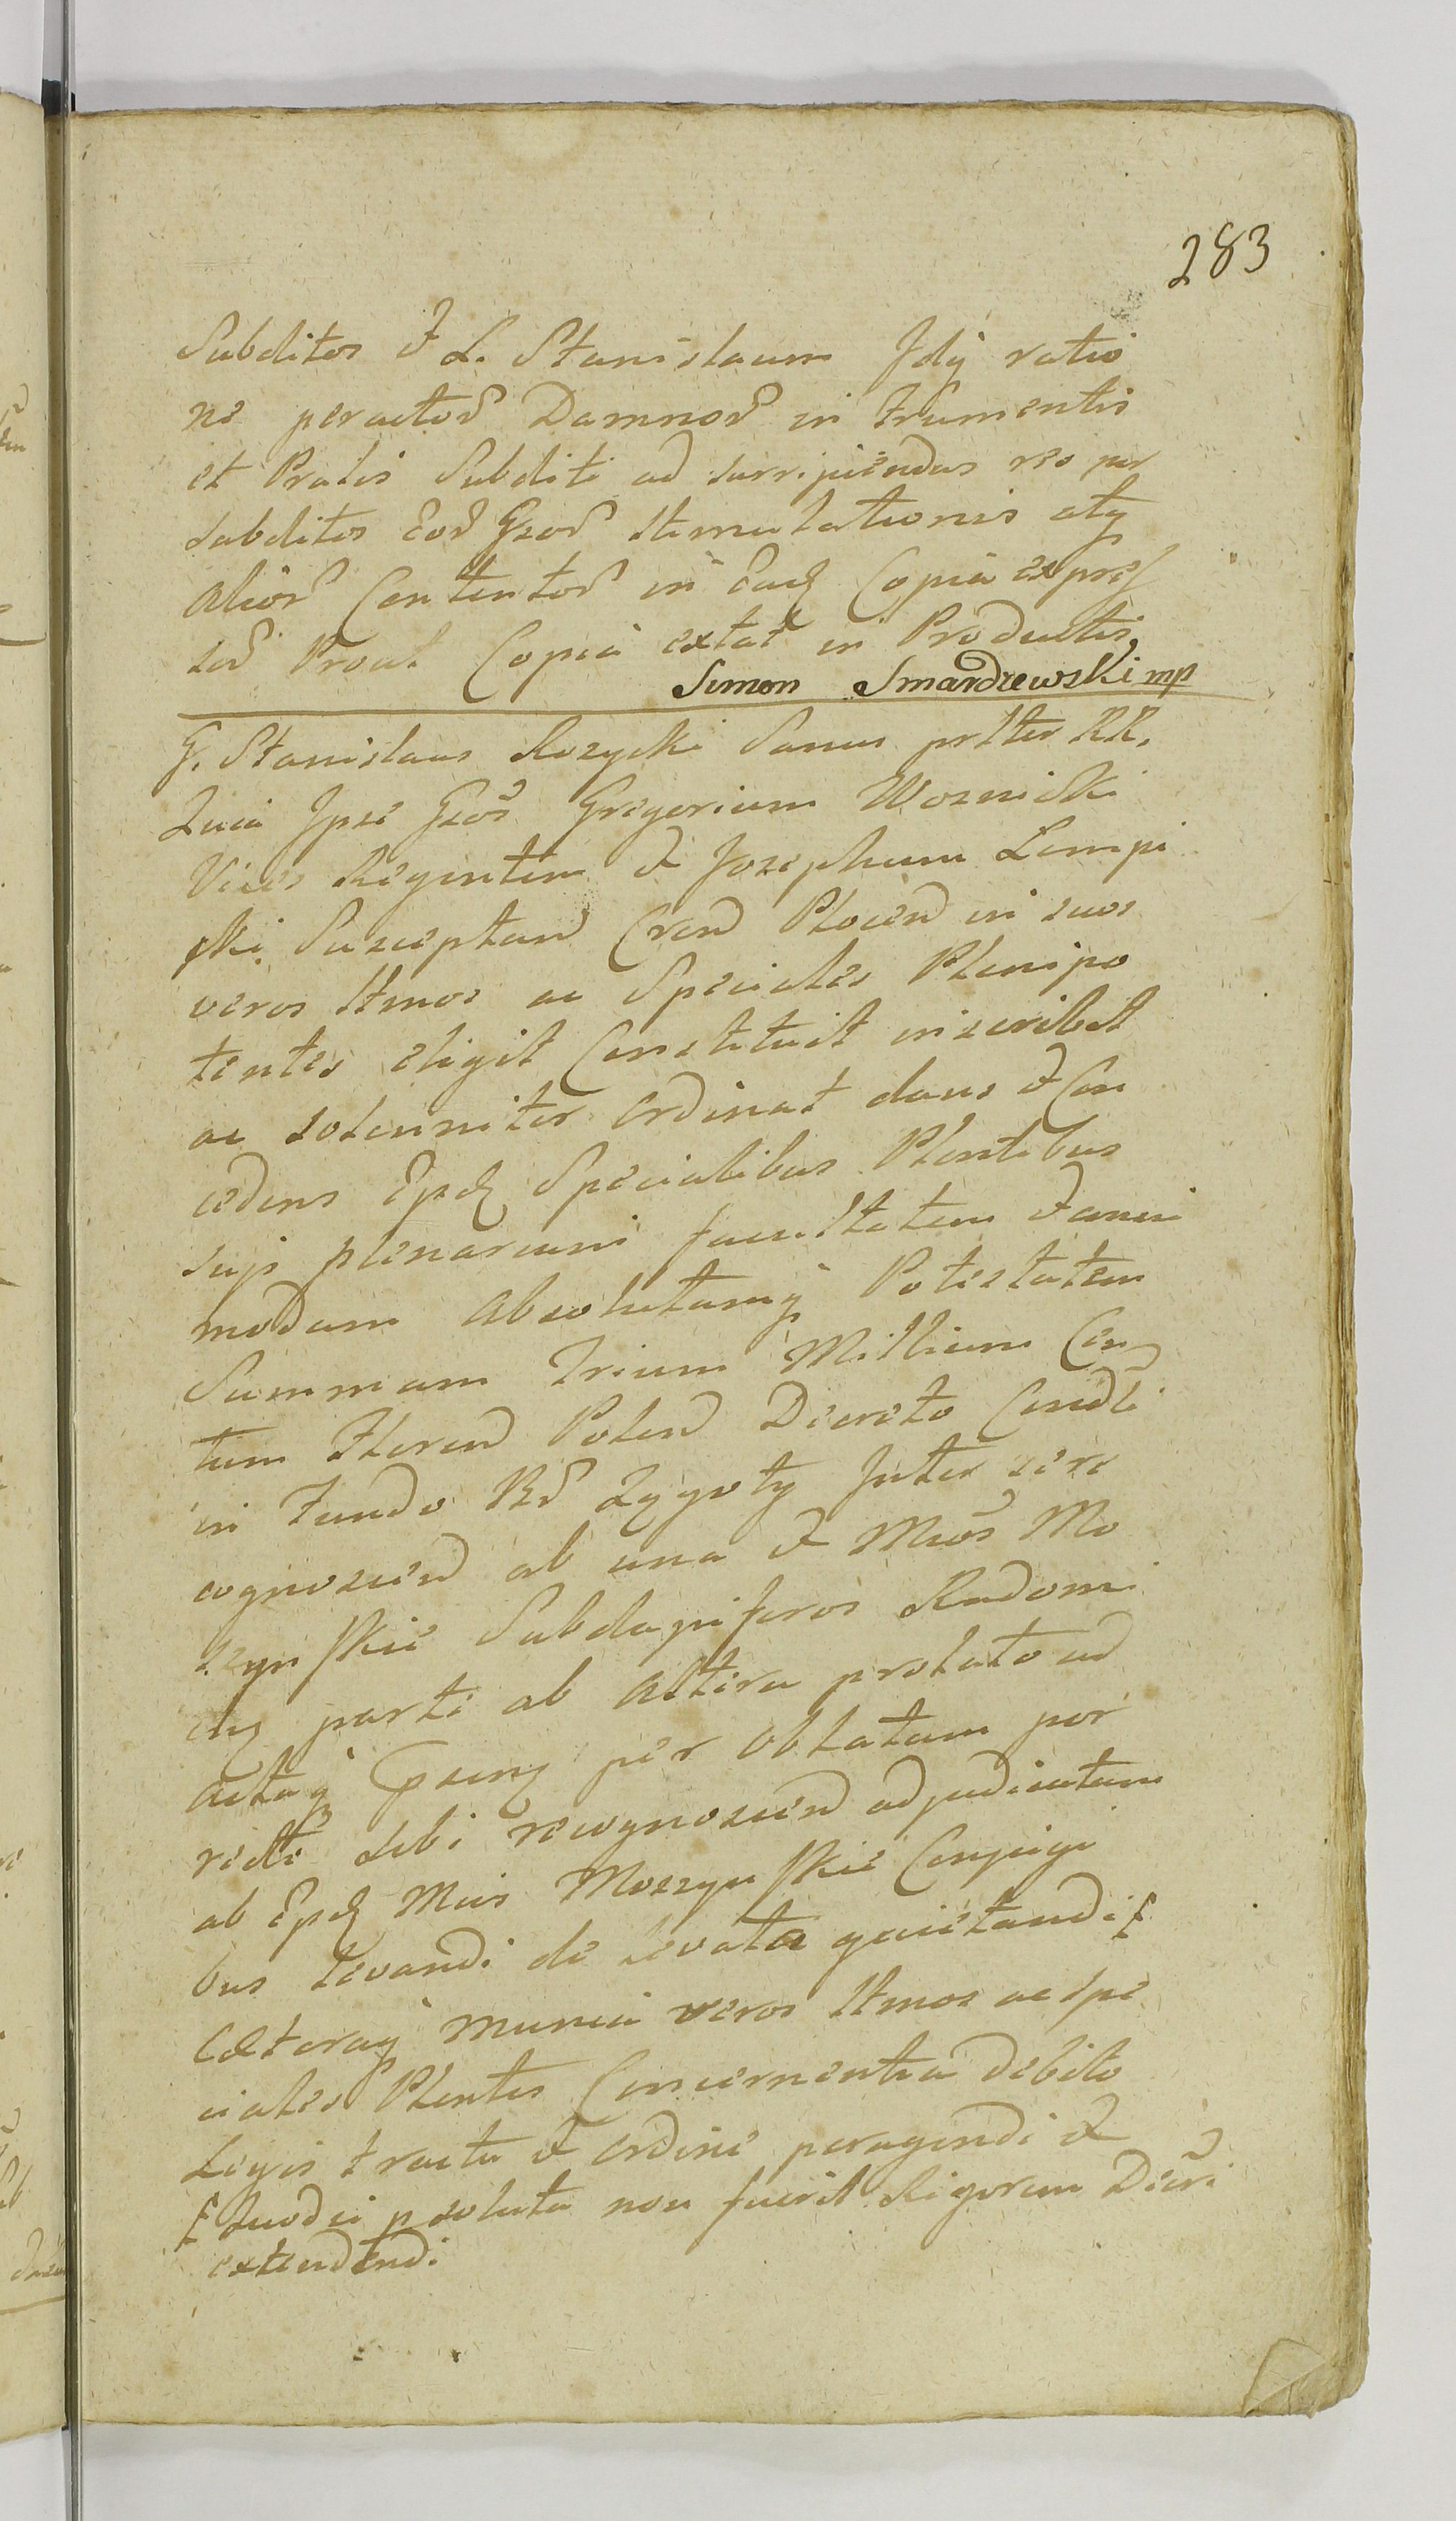 283
Subditos & L. Stanislaum Jdij ratio
ne peractor Damnor in frumentis
et Pratis Subditi ad surripiendas res per
subditos Eor Gsor Stimulationis atq
alior Contentor in Ead Copia expres
sor Prout Copia extat in Productis.
Simon Smardzewski mp
G. Stanislaus Rozycki Sanus prlter RR.
Quia Jpse Gsos Gregorium Woznicki
Vices Regentem & Josephum Lempi
cki Susceptan Cren Plocen in suos
veros ltmos ac Speciales Plenipo
tentes eligit Constituit inscribit
ac solenniter ordinat dans & Con
cedens Epd Specialibus Plentibus
suis plenariam facultatem & omni
modam absolutamq Potestatem
Summam Trium Millium Cen
tum Floren Polen Decreto Condli
in Fundo Bor Zygoty Inter se re
cognoscen ab una & Mcos Mo
szynskie Subdapiferos Radomi
en parte ab altera prolato ad
actaq per oblatam por
recte sibi recognoscen adjudicatam
ab Epd Mcis Moszynskie Conjugi
bus levandi de levata quietandi
Cæteraq munia veros ltmos ac spe
ciales Plentes Concernentia debito
Legis tractu & ordine peragendi &
Quodsi psoluta non fuerit Rigorem Decri
extendendi